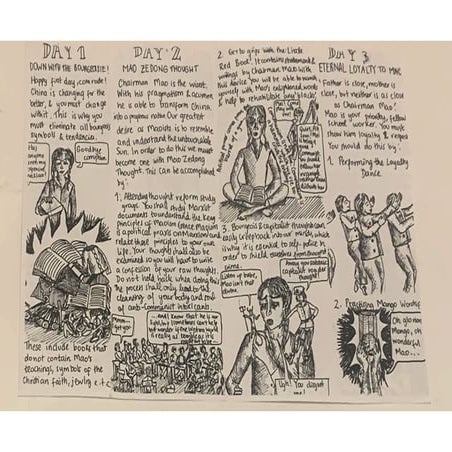 DAY 1
DOWN WITH THE BOURGEOISIE!
Happy first day, comrade!
China is changing for
the better, & you must change
with it. This is why you
must eliminate all bourgeois
symbols & tendencies.
Goodbye
corruption
These include books that
do not contain Mao's
teachings, symbols of the
Christian faith, jewlry e.t.c
DAY 2
MAO ZEDONG THOUGHT
Chairman Mao is the wisest.
With his pragmatism & acumen
he is able to transform China
into a prosperous nation. Our greatest
desire as Maoists is to resemble
and understand the unbourgeois
Sun. In order to do this we must
become one with Mao Zedong
Thought. This can be accomplished
by:
1. Attending thought reform study
groups. You shall study Marxist
documents to understand the key
principles of Maoism (since Maoism
is a part of praxis on Marxism) and
relate those principles to your own
life. Your thought shall also be
examined so you will have to write
a confession of your raw thoughts.
Do not hold back when doing this
the process shall only lead to the
cleansing of your body and soul
of anti-Communist intellicants.
...and I know that he is our
light, but I sometimes can't help
but wonder if the system would
2. Get to grips with the Little
Red Book. It contains statements &
writings by Chairman Mao. With
this advice you will be able to enrich
yourself with Mao's enlightened words
& help to rehabilitate
3. Bourgeois & capitalist thoughts can
easily creep back into our minds, which
is why it is essential to self-police in
order to shield ourselves from thought
crime.
Listen up babe,
Mao isn't that
Away you sadness
capitalist vulgar
thought!
Ugh! You disgust
me!
DAY 3
ETERNAL LOYALTY TO MAO
Father is close, mother is
close, but neither is as close
as Chairman Mao!
Mao is your priority, fellow
school worker. You must
show him loyalty & respect
You should do this by:
1. Performing the Loyalty
Dance
2. Practicing Mango Worship
Oh, glorious
Mango, oh
wonderful
Mao...